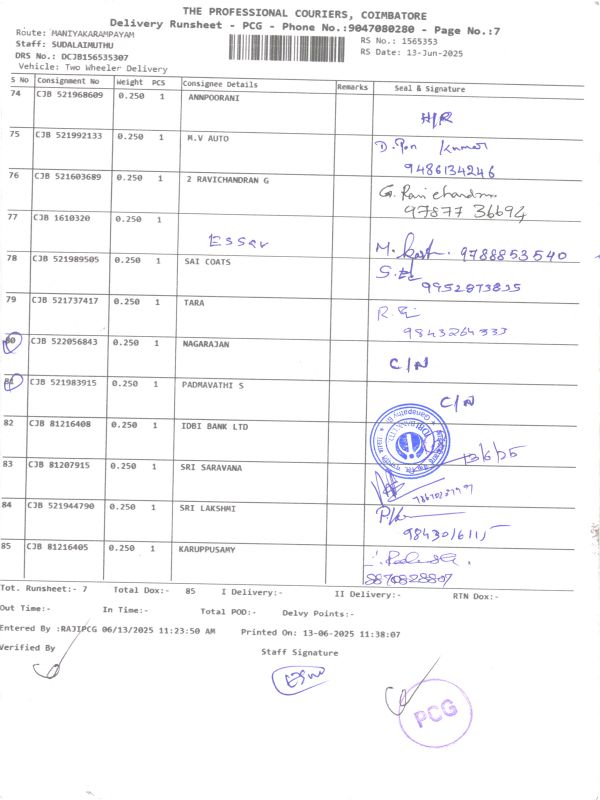 THE PROFESSIONAL COURIERS, COIMBATORE
Delivery Runsheet - PCG - Phone No.:9047080280 - Page No.:7
Route: MANIYAKARAMPAYAM RS No.: 1565353
Staff: SUDALAIMUTHU RS Date: 13-Jun-2025
DRS No.: DCJB156535307
Vehicle: Two Wheeler Delivery
S No Consignment No Weight PCS Consignee Details Remarks Seal & Signature
74 CJB 521968609 0.250 1 ANNPOORANI
H/R
75 CJB 521992133 0.250 1 M.V AUTO D. Pon Kumar
9486134246
76 CJB 521603689 0.250 1 2 RAVICHANDRAN G G. Ravichandran
97877 36694
77 CJB 1610320 0.250 1
Essar M. 9788853540
78 CJB 521989505 0.250 1 SAI COATS
9952873835
79 CJB 521737417 0.250 1 TARA
9843264333
80 CJB 522056843 0.250 1 NAGARAJAN C/N
81 CJB 521983915 0.250 1 PADMAVATHI S C/N
82 CJB 81216408 0.250 1 IDBI BANK LTD
13/6/25
83 CJB 81207915 0.250 1 SRI SARAVANA
84 CJB 521944790 0.250 1 SRI LAKSHMI
9843016115
85 CJB 81216405 0.250 1 KARUPPUSAMY
9870828807
Tot. Runsheet:- 7 Total Dox:- 85 I Delivery:- II Delivery:- RTN Dox:-
Out Time:- In Time:- Total POD:- Delvy Points:-
Entered By :RAJIPCG 06/13/2025 11:23:50 AM Printed On: 13-06-2025 11:38:07
Verified By Staff Signature
PCG